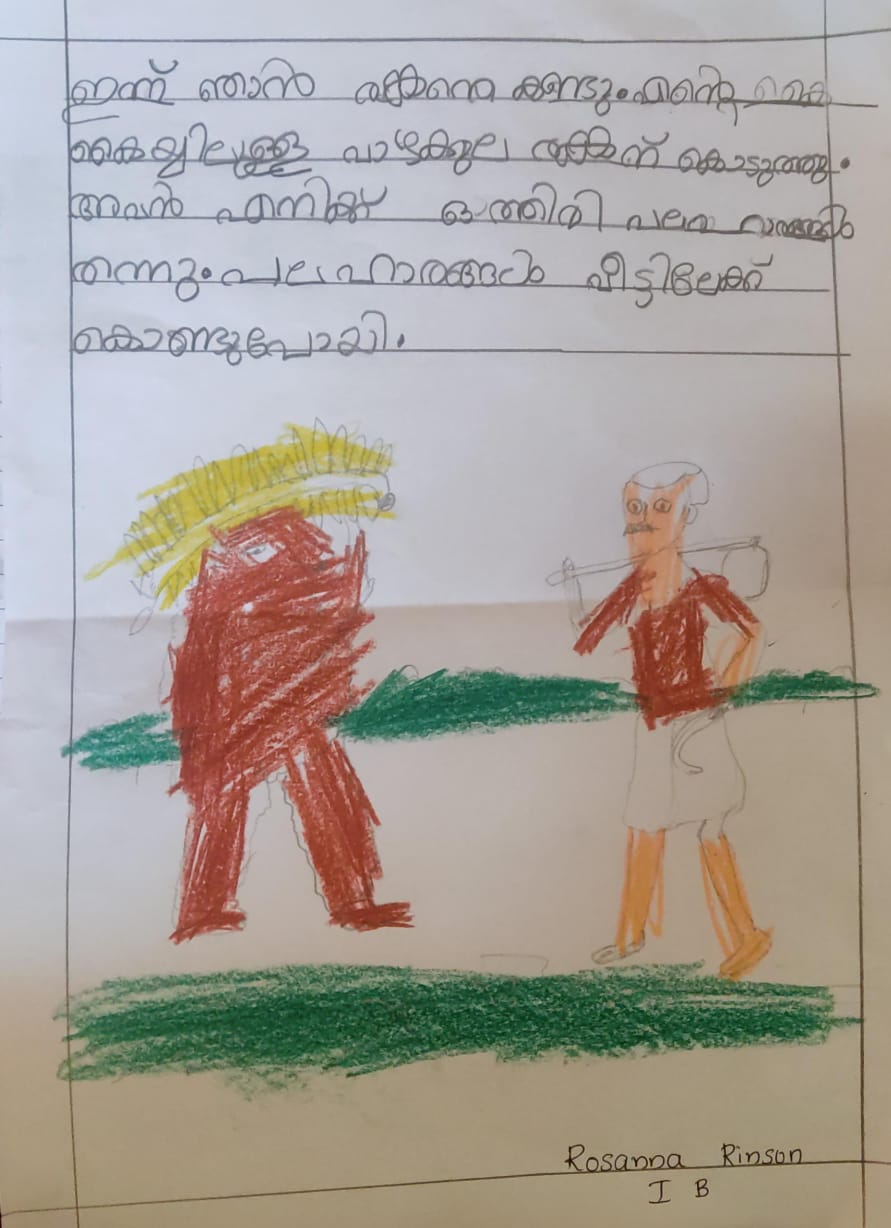 ഇന്ന് ഞാൻ കണ്ടു. എന്റെ കൈ
കൈയ്യിലുള്ള വാഴക്കുല കൊടുത്തു.
അവൻ എനിക്ക് ഒത്തിരി പലഹാരങ്ങൾ
തന്നു. പലഹാരങ്ങൾ വീട്ടിലേക്ക്
കൊണ്ടുപോയി.
Rosanna Rinson
I B